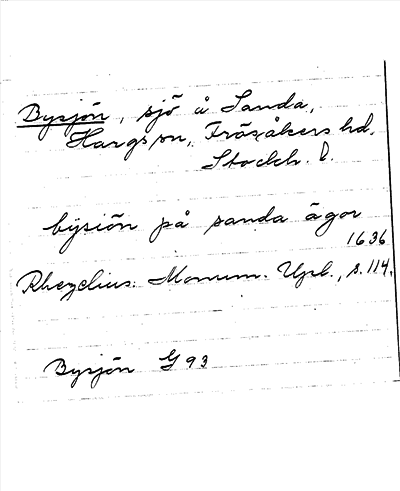 Bysjön, sjö å Sanda,
Hargs sn, Frösåkers hd,
Stockh. l.
bÿsiön på sanda ägor
1636
Rhezelius: Monum. Upl., s. 114.
Bysjön G 93